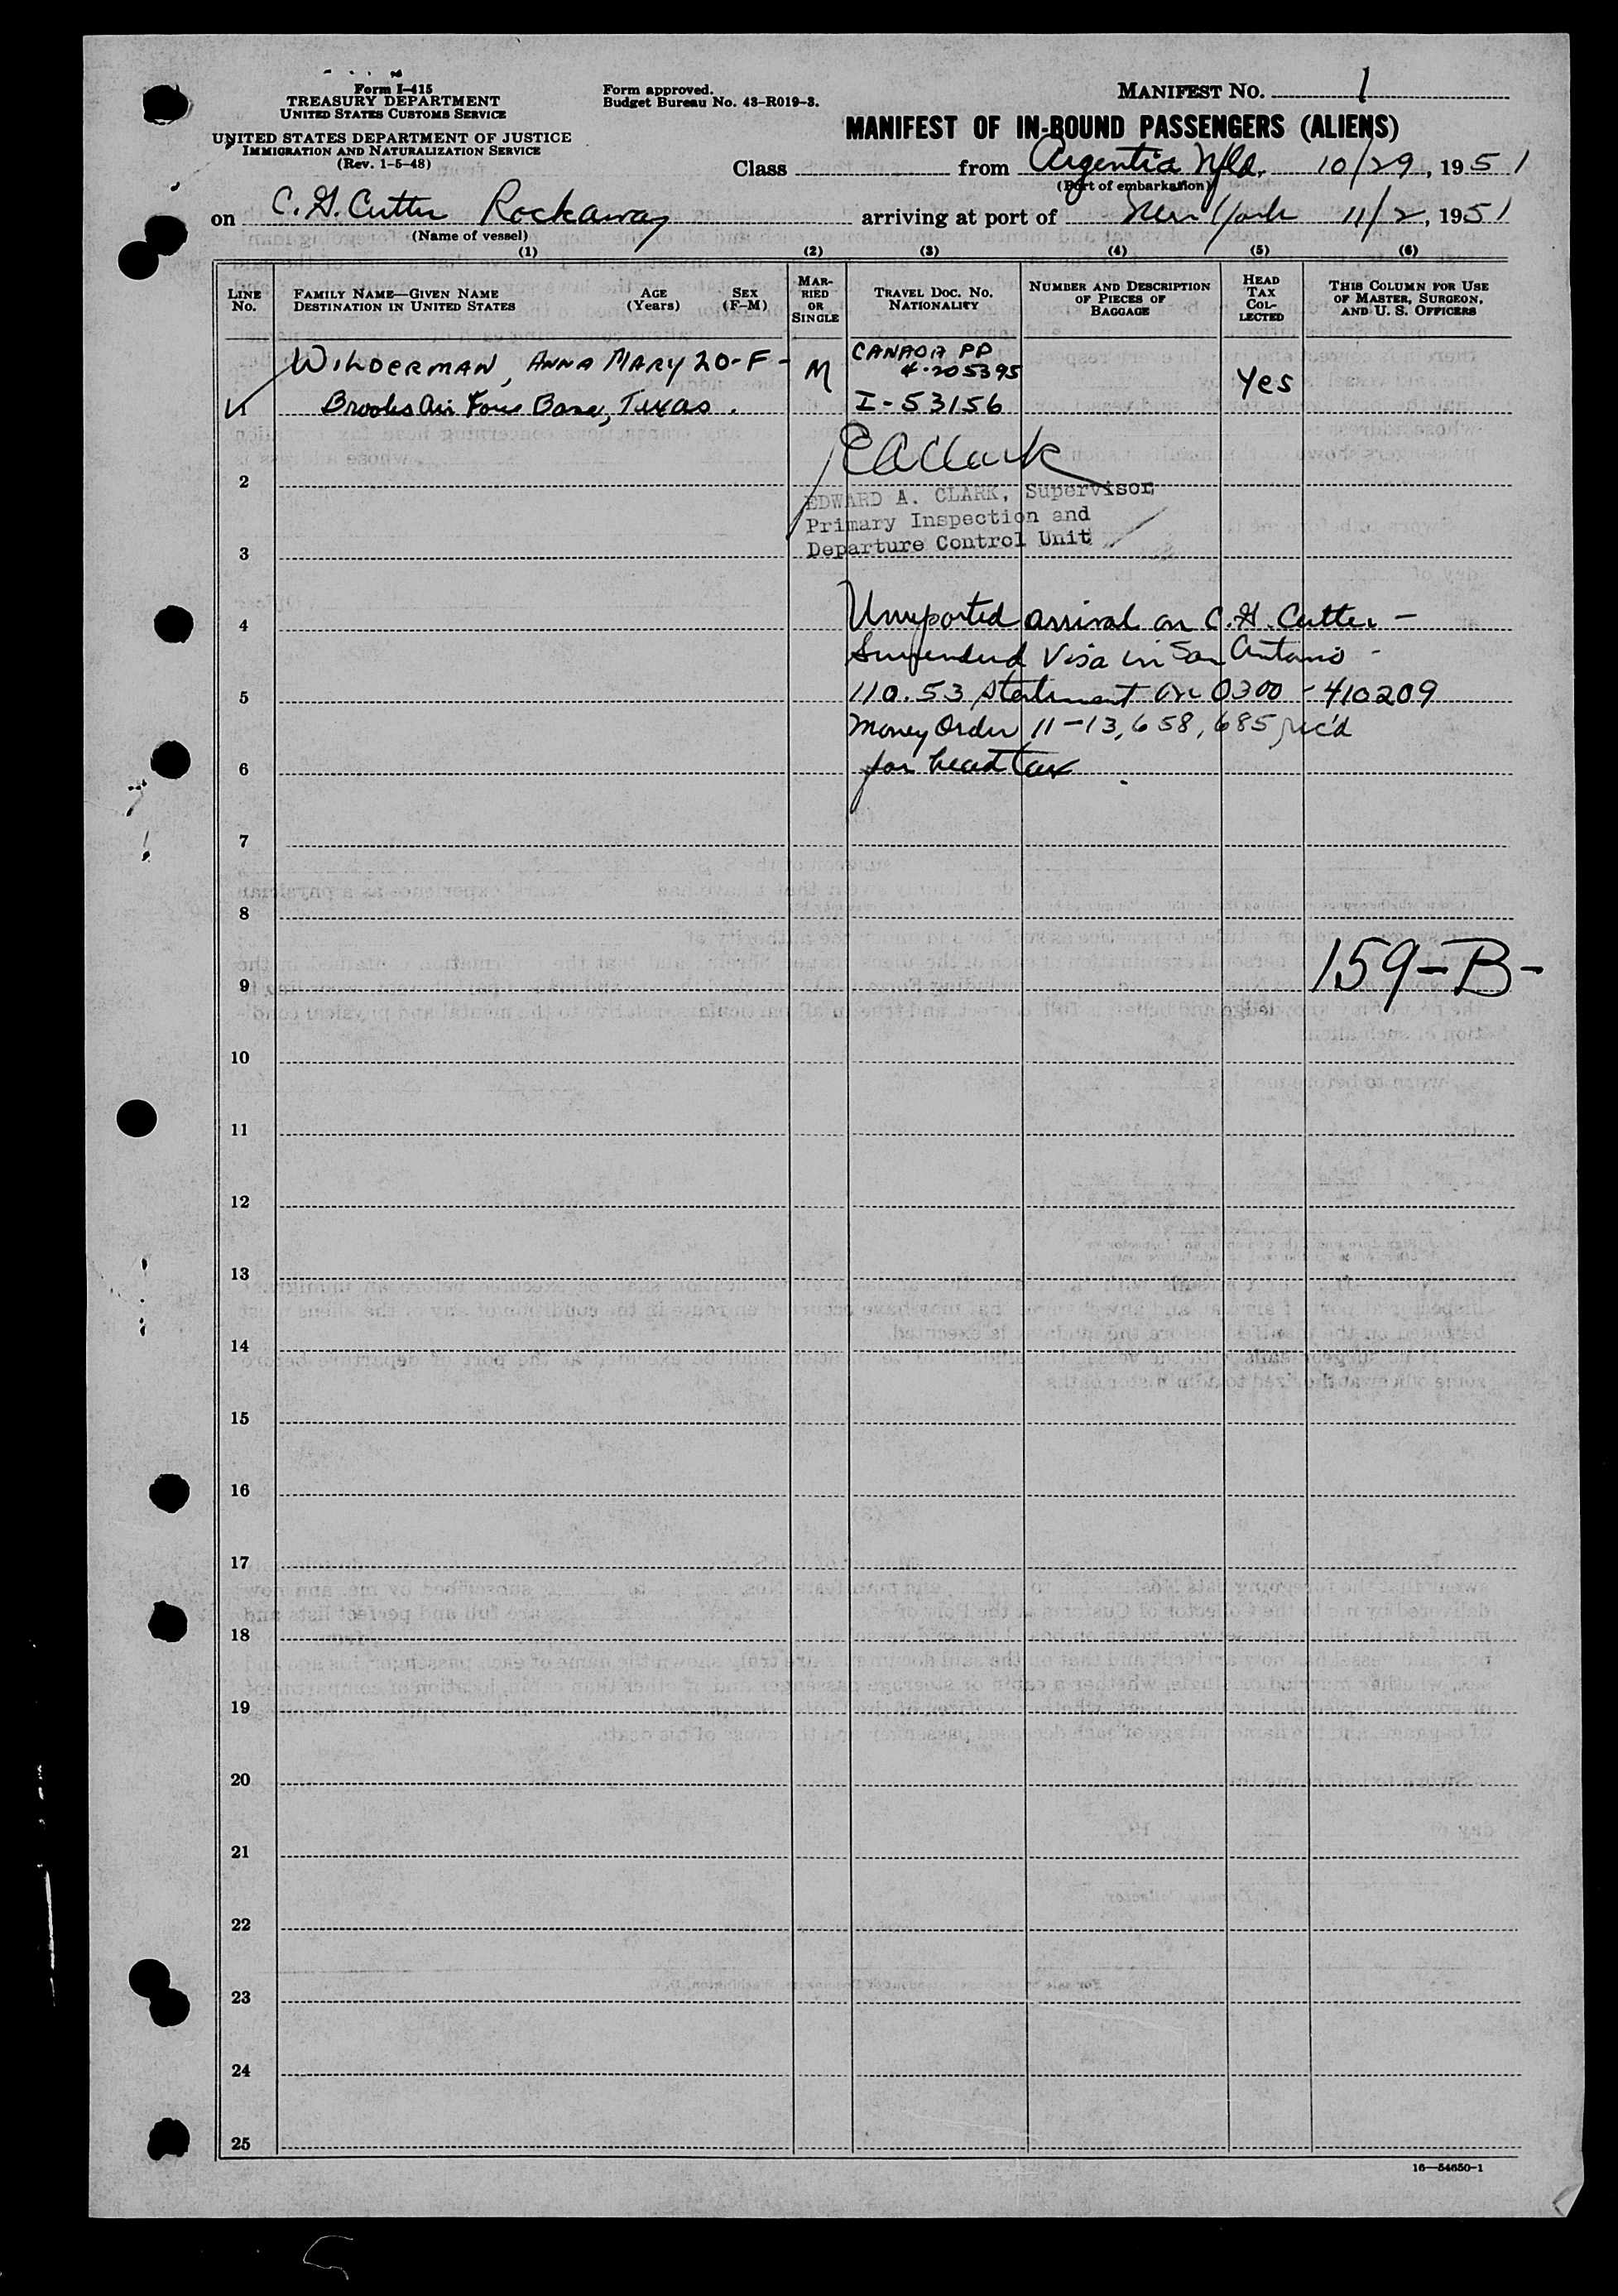 Form I-415
TREASURY DEPARTMENT
UNITED STATES CUSTOMS SERVICE
UNITED STATES DEPARTMENT OF JUSTICE
IMMIGRATION AND NATURALIZATION SERVICE
(Rev. 1-5-48)
Form approved.
Budget Bureau No. 43-R019-3.
MANIFEST No. 1
MANIFEST OF IN-BOUND PASSENGERS (ALIENS)
Class from Argentia Nfld. 10/29, 1951
(Port of embarkation)
on C.G. Cutter Rockaway arriving at port of New York 11/2, 1951
(Name of vessel)
(1) (2) (3) (4) (5) (6)
LINE No.
FAMILY NAME—GIVEN NAME
DESTINATION IN UNITED STATES
AGE (Years)
SEX (F-M)
MARRIED OR SINGLE
TRAVEL DOC. No.
NATIONALITY
NUMBER AND DESCRIPTION OF PIECES OF BAGGAGE
HEAD TAX COLLECTED
THIS COLUMN FOR USE OF MASTER, SURGEON, AND U. S. OFFICERS
WILDERMAN, ANNA MARY 20-F- M CANADA PP
4-205395 Yes
1 Brooks Air Force Base, Texas. I-53156
EAClark
2
EDWARD A. CLARK, Supervisor
Primary Inspection and
Departure Control Unit
3
4 Unreported arrival on C.G. Cutter -
Surrendered Visa in San Antonio -
5 110.53 statement on 0300-410209
Money Order 11-13,658,685 rec'd
6 for head tax.
7
8
9 159-B-
10
11
12
13
14
15
16
17
18
19
20
21
22
23
24
25
16—54650-1